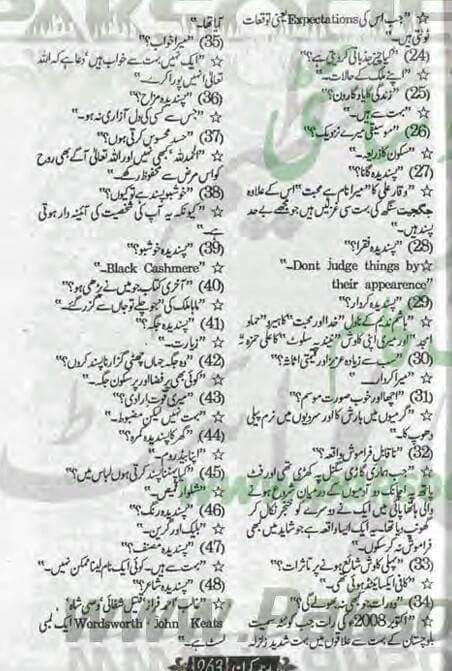 ☆ "جب اس کی Expectations یعنی توقعات
ٹوٹتی ہیں۔"
(24) "کیا چیز جذباتی کر دیتی ہے؟"
☆ "اپنے ملک کے حالات۔"
(25) "زندگی کا یادگار دن؟"
☆ "بہت سے ہیں۔"
(26) "موسیقی میرے نزدیک؟"
☆ "سکون کا ذریعہ۔"
(27) "پسندیدہ گانا؟"
☆ "وقار علی کا "میرا نام ہے محبت" اس کے علاوہ
جگجیت سنگھ کی بہت سی غزلیں ہیں جو مجھے بے حد
پسند ہیں۔"
(28) "پسندیدہ فقرا؟"
☆ "Dont judge things by
their appearence"
(29) "پسندیدہ کردار؟"
☆ "ہاشم ندیم کے ناول "خدا اور محبت" کا ہیرو "حماد
امجد" اور میری اپنی کاوش کا علی حمزہ
(30) "سب سے زیادہ عزیز اور قیمتی اثاثہ؟"
☆ "میرا کردار۔"
(31) "اچھا اور خوب صورت موسم؟"
☆ "گرمیوں میں بارش کا اور سردیوں میں نرم پیلی
دھوپ کا۔"
(32) "ناقابل فراموش واقعہ؟"
☆ "جب ہماری گاڑی سگنل پہ کھڑی تھی اور فٹ
پاتھ پہ اچانک دو آدمیوں کے درمیان شروع ہونے
والی ہاتھا پائی میں ایک نے دوسرے کو خنجر نکال کر
گھونپ دیا تھا۔ یہ ایک ایسا واقعہ ہے جو شاید میں کبھی
فراموش نہ کر سکوں۔"
(33) "پہلی کاوش شائع ہونے پر تاثرات؟"
☆ "کافی ایکسائیٹڈ ہوئی تھی۔"
(34) "وہ رات جو کبھی نہ بھولے گی؟"
☆ "اکتوبر 2008ء کی رات جب کوئٹہ سمیت
بلوچستان کے بہت سے علاقوں میں بہت شدید زلزلہ
آیا تھا۔"
(35) "میرا خواب؟"
☆ "ایک نہیں بہت سے خواب ہیں، دعا ہے کہ اللہ
تعالیٰ انہیں پورا کرے۔"
(36) "پسندیدہ مزاح؟"
☆ "جس سے کسی کی دل آزاری نہ ہو۔"
(37) "حسد محسوس کرتی ہوں؟"
☆ "الحمدللہ، کبھی نہیں اور اللہ تعالیٰ آگے بھی روح
کو اس مرض سے محفوظ رکھے۔"
(38) "خوشبو پسند ہے تو کیوں؟"
☆ "کیونکہ یہ آپ کی شخصیت کی آئینہ دار ہوتی
ہے۔"
(39) "پسندیدہ خوشبو؟"
☆ "Black Cashmere۔"
(40) "آخری کتاب جو میں نے پڑھی ہو؟"
☆ "ماہا ملک کی "جو چلے تو جاں سے گزر گئے۔"
(41) "پسندیدہ جگہ؟"
☆ "زیارت۔"
(42) "وہ جگہ جہاں چھٹی گزارنا پسند کروں؟"
☆ "کوئی بھی پرفضا اور پرسکون جگہ۔"
(43) "میری قوت ارادی؟"
☆ "بہت نہیں لیکن مضبوط۔"
(44) "گھر کا پسندیدہ کمرہ؟"
☆ "اپنا بیڈ روم۔"
(45) "کیا پہننا پسند کرتی ہوں لباس میں؟"
☆ "شلوار قمیص۔"
(46) "پسندیدہ رنگ؟"
☆ "بلیک اور گرین۔"
(47) "پسندیدہ مصنف؟"
☆ "بہت سے ہیں۔ کوئی ایک نام لینا ممکن نہیں۔"
(48) "پسندیدہ شاعر؟"
☆ "غالب، احمد فراز، قتیل شفائی، وصی شاہ،
Wordsworth، john Keats ایک لمبی
لسٹ ہے۔"
263